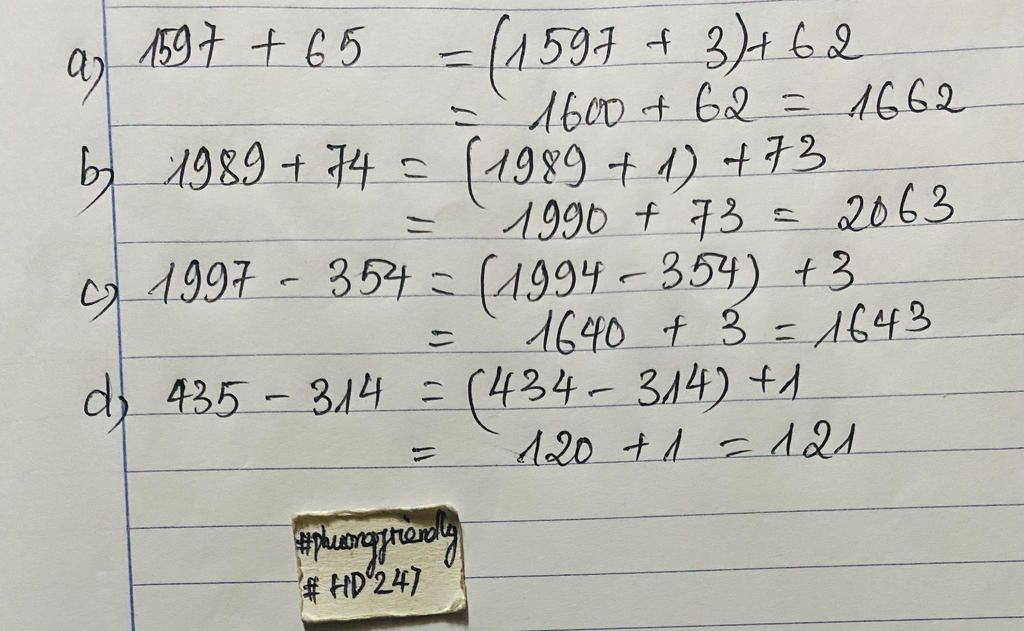 a) 1597 + 65 = (1597 + 3) + 62
= 1600 + 62 = 1662
b) 1989 + 74 = (1989 + 1) + 73
= 1990 + 73 = 2063
c) 1997 - 354 = (1994 - 354) + 3
= 1640 + 3 = 1643
d) 435 - 314 = (434 - 314) + 1
= 120 + 1 = 121
#phuongfriendly
# HD 247